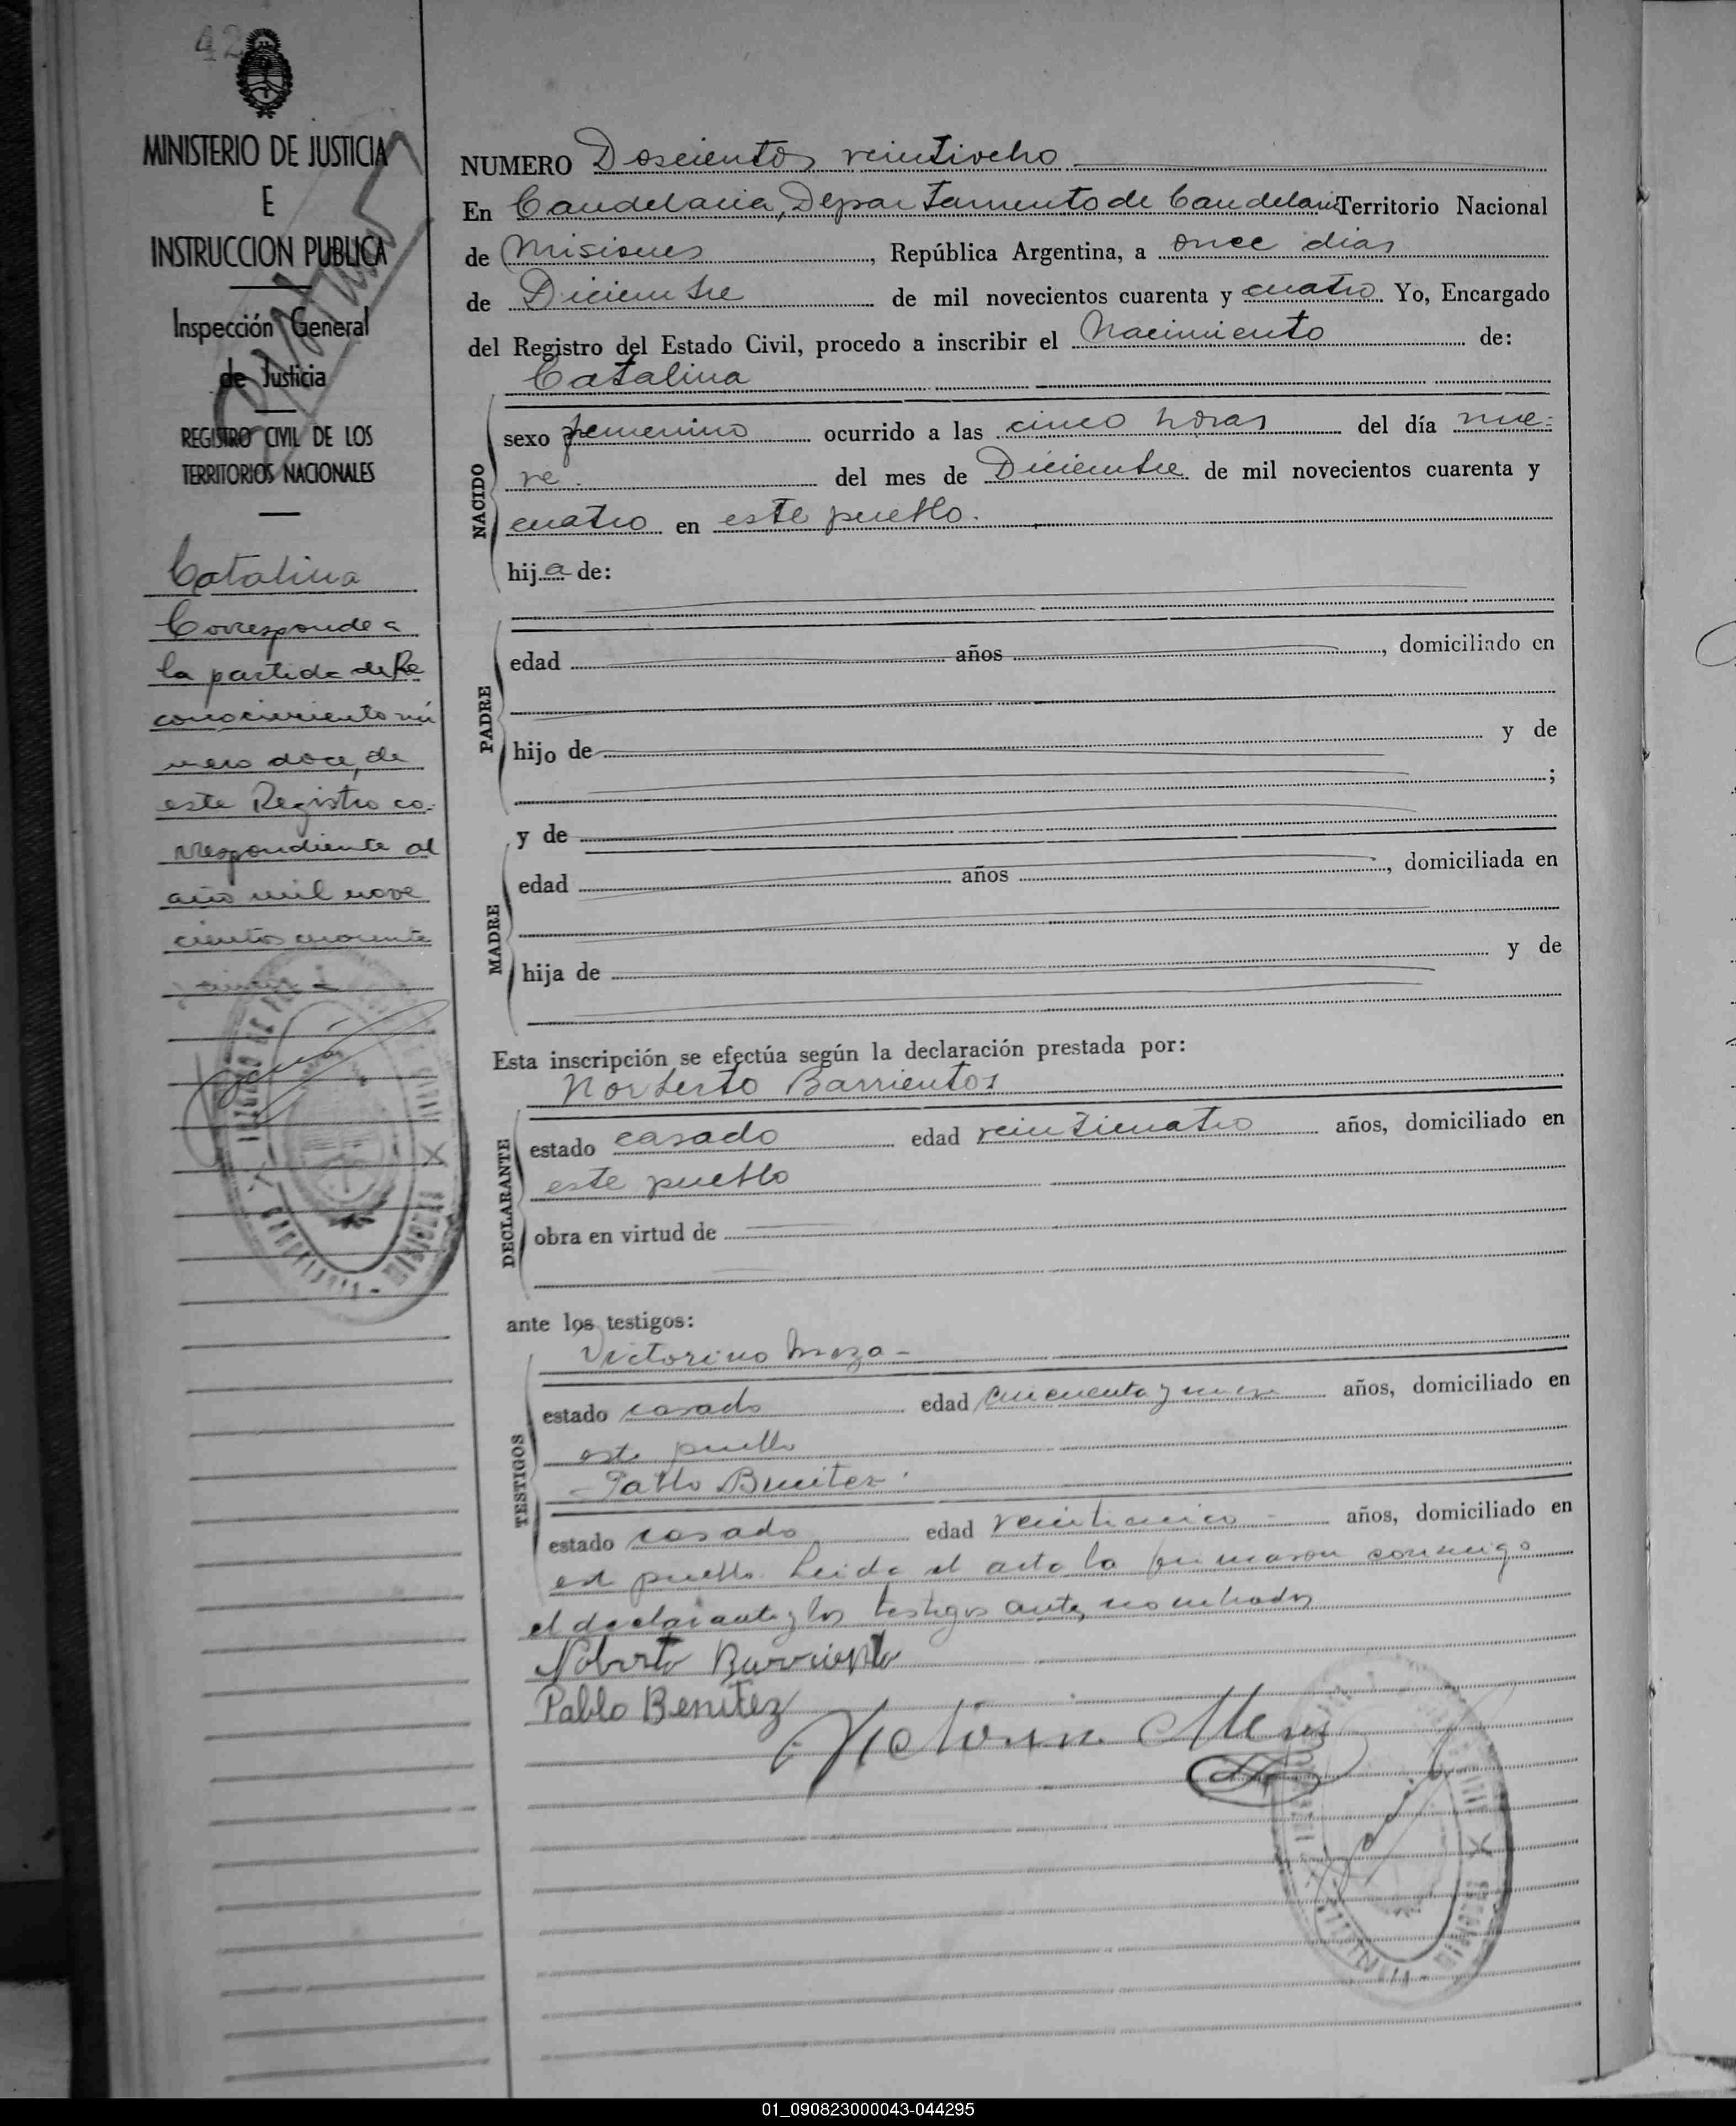 42
MINISTERIO DE JUSTICIA
E
INSTRUCCION PUBLICA
Inspección General
de Justicia
REGISTRO CIVIL DE LOS
TERRITORIOS NACIONALES
Catalina
Corresponde a
la partida de Re
conocimiento nú
mero doce, de
este Registro co-
rrespondiente al
año mil nove
cientos cuarenta
NUMERO Doscientos veintiocho
En Candelaria, Departamento de Candelaria Territorio Nacional
de Misiones, República Argentina, a once dias
de Diciembre de mil novecientos cuarenta y cuatro Yo, Encargado
del Registro del Estado Civil, procedo a inscribir el Nacimiento de:
Catalina
NACIDO
sexo femenino ocurrido a las cinco horas del día nue-
ve. del mes de Diciembre de mil novecientos cuarenta y
cuatro en este pueblo.
hija de:
PADRE
edad años, domiciliado en
hijo de y de
;
y de
MADRE
edad años, domiciliada en
hija de y de
Esta inscripción se efectúa según la declaración prestada por:
Norberto Barrientos
DECLARANTE
estado casado edad veinticuatro años, domiciliado en
este pueblo
obra en virtud de
ante los testigos:
Victorino Meza -
TESTIGOS
estado casado edad cincuenta y nueve años, domiciliado en
este pueblo
Pablo Benitez
estado casado edad veinticinco años, domiciliado en
este pueblo. Leida el acta la firmaron conmigo
el declarante y los testigos antes nombrados
Noberto Barriento
Pablo Benitez
Victorino Meza
01_090823000043-044295